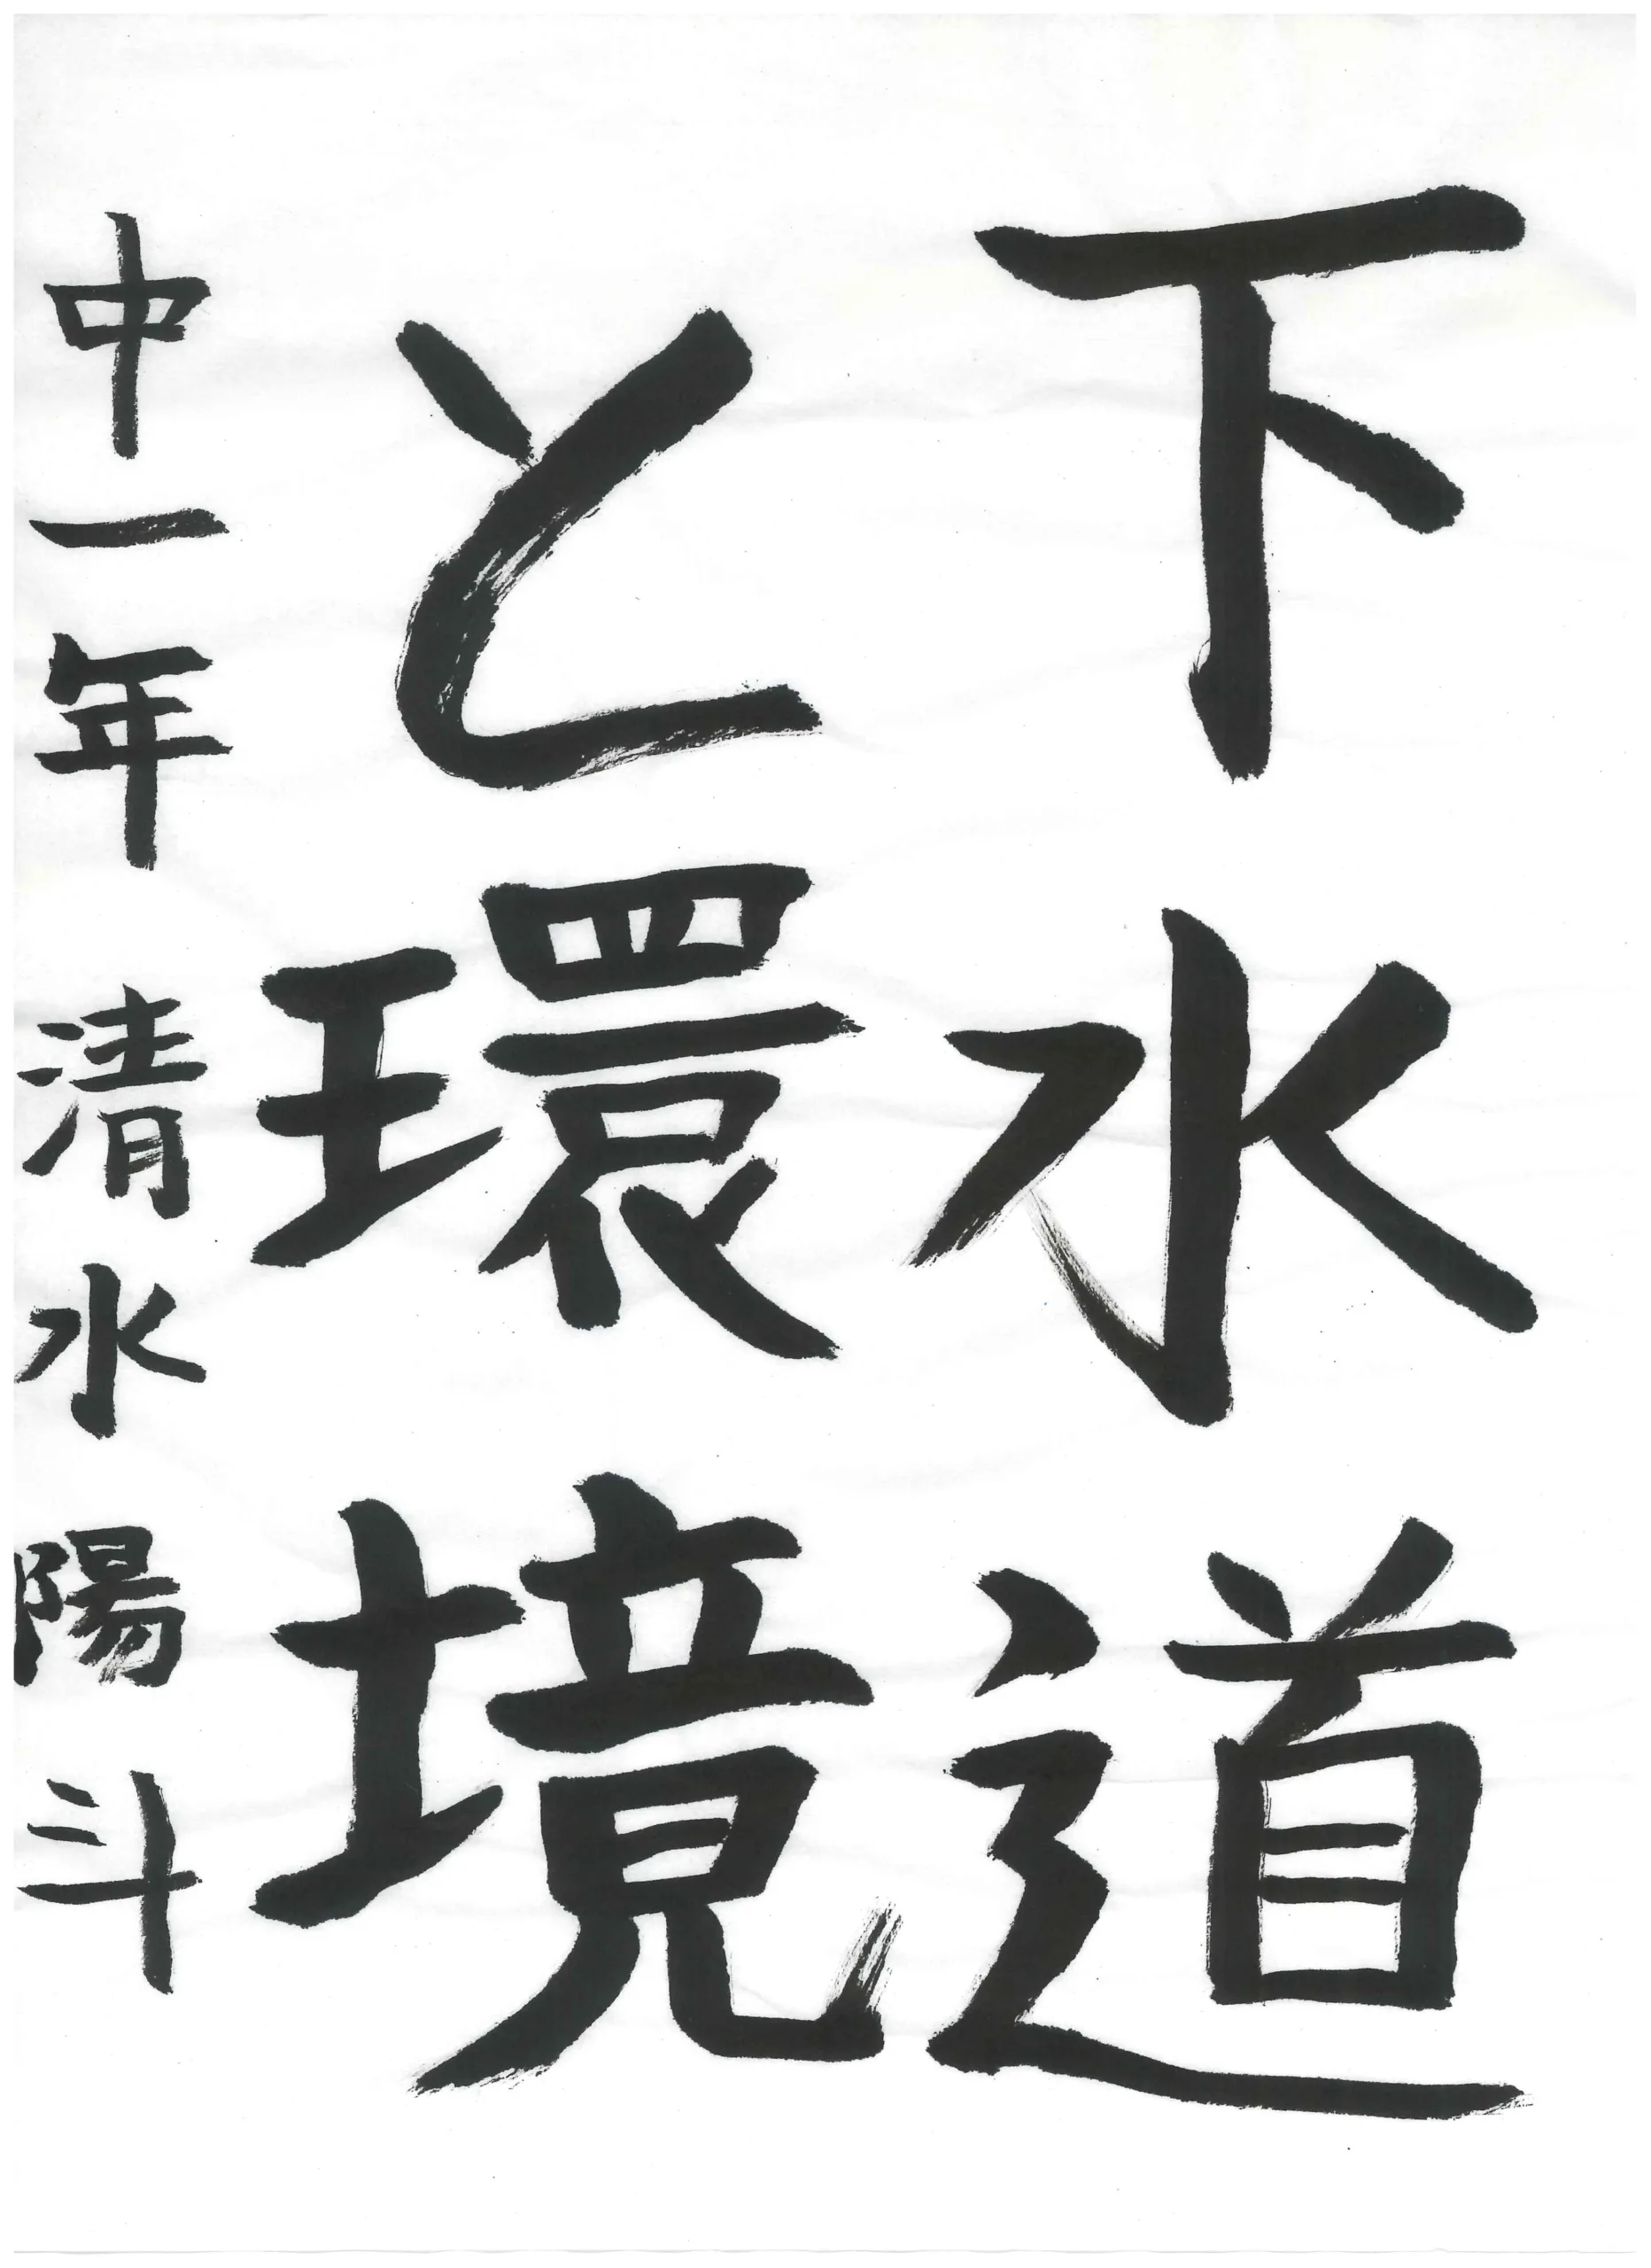 下水道
と環境
中一年 清水陽斗